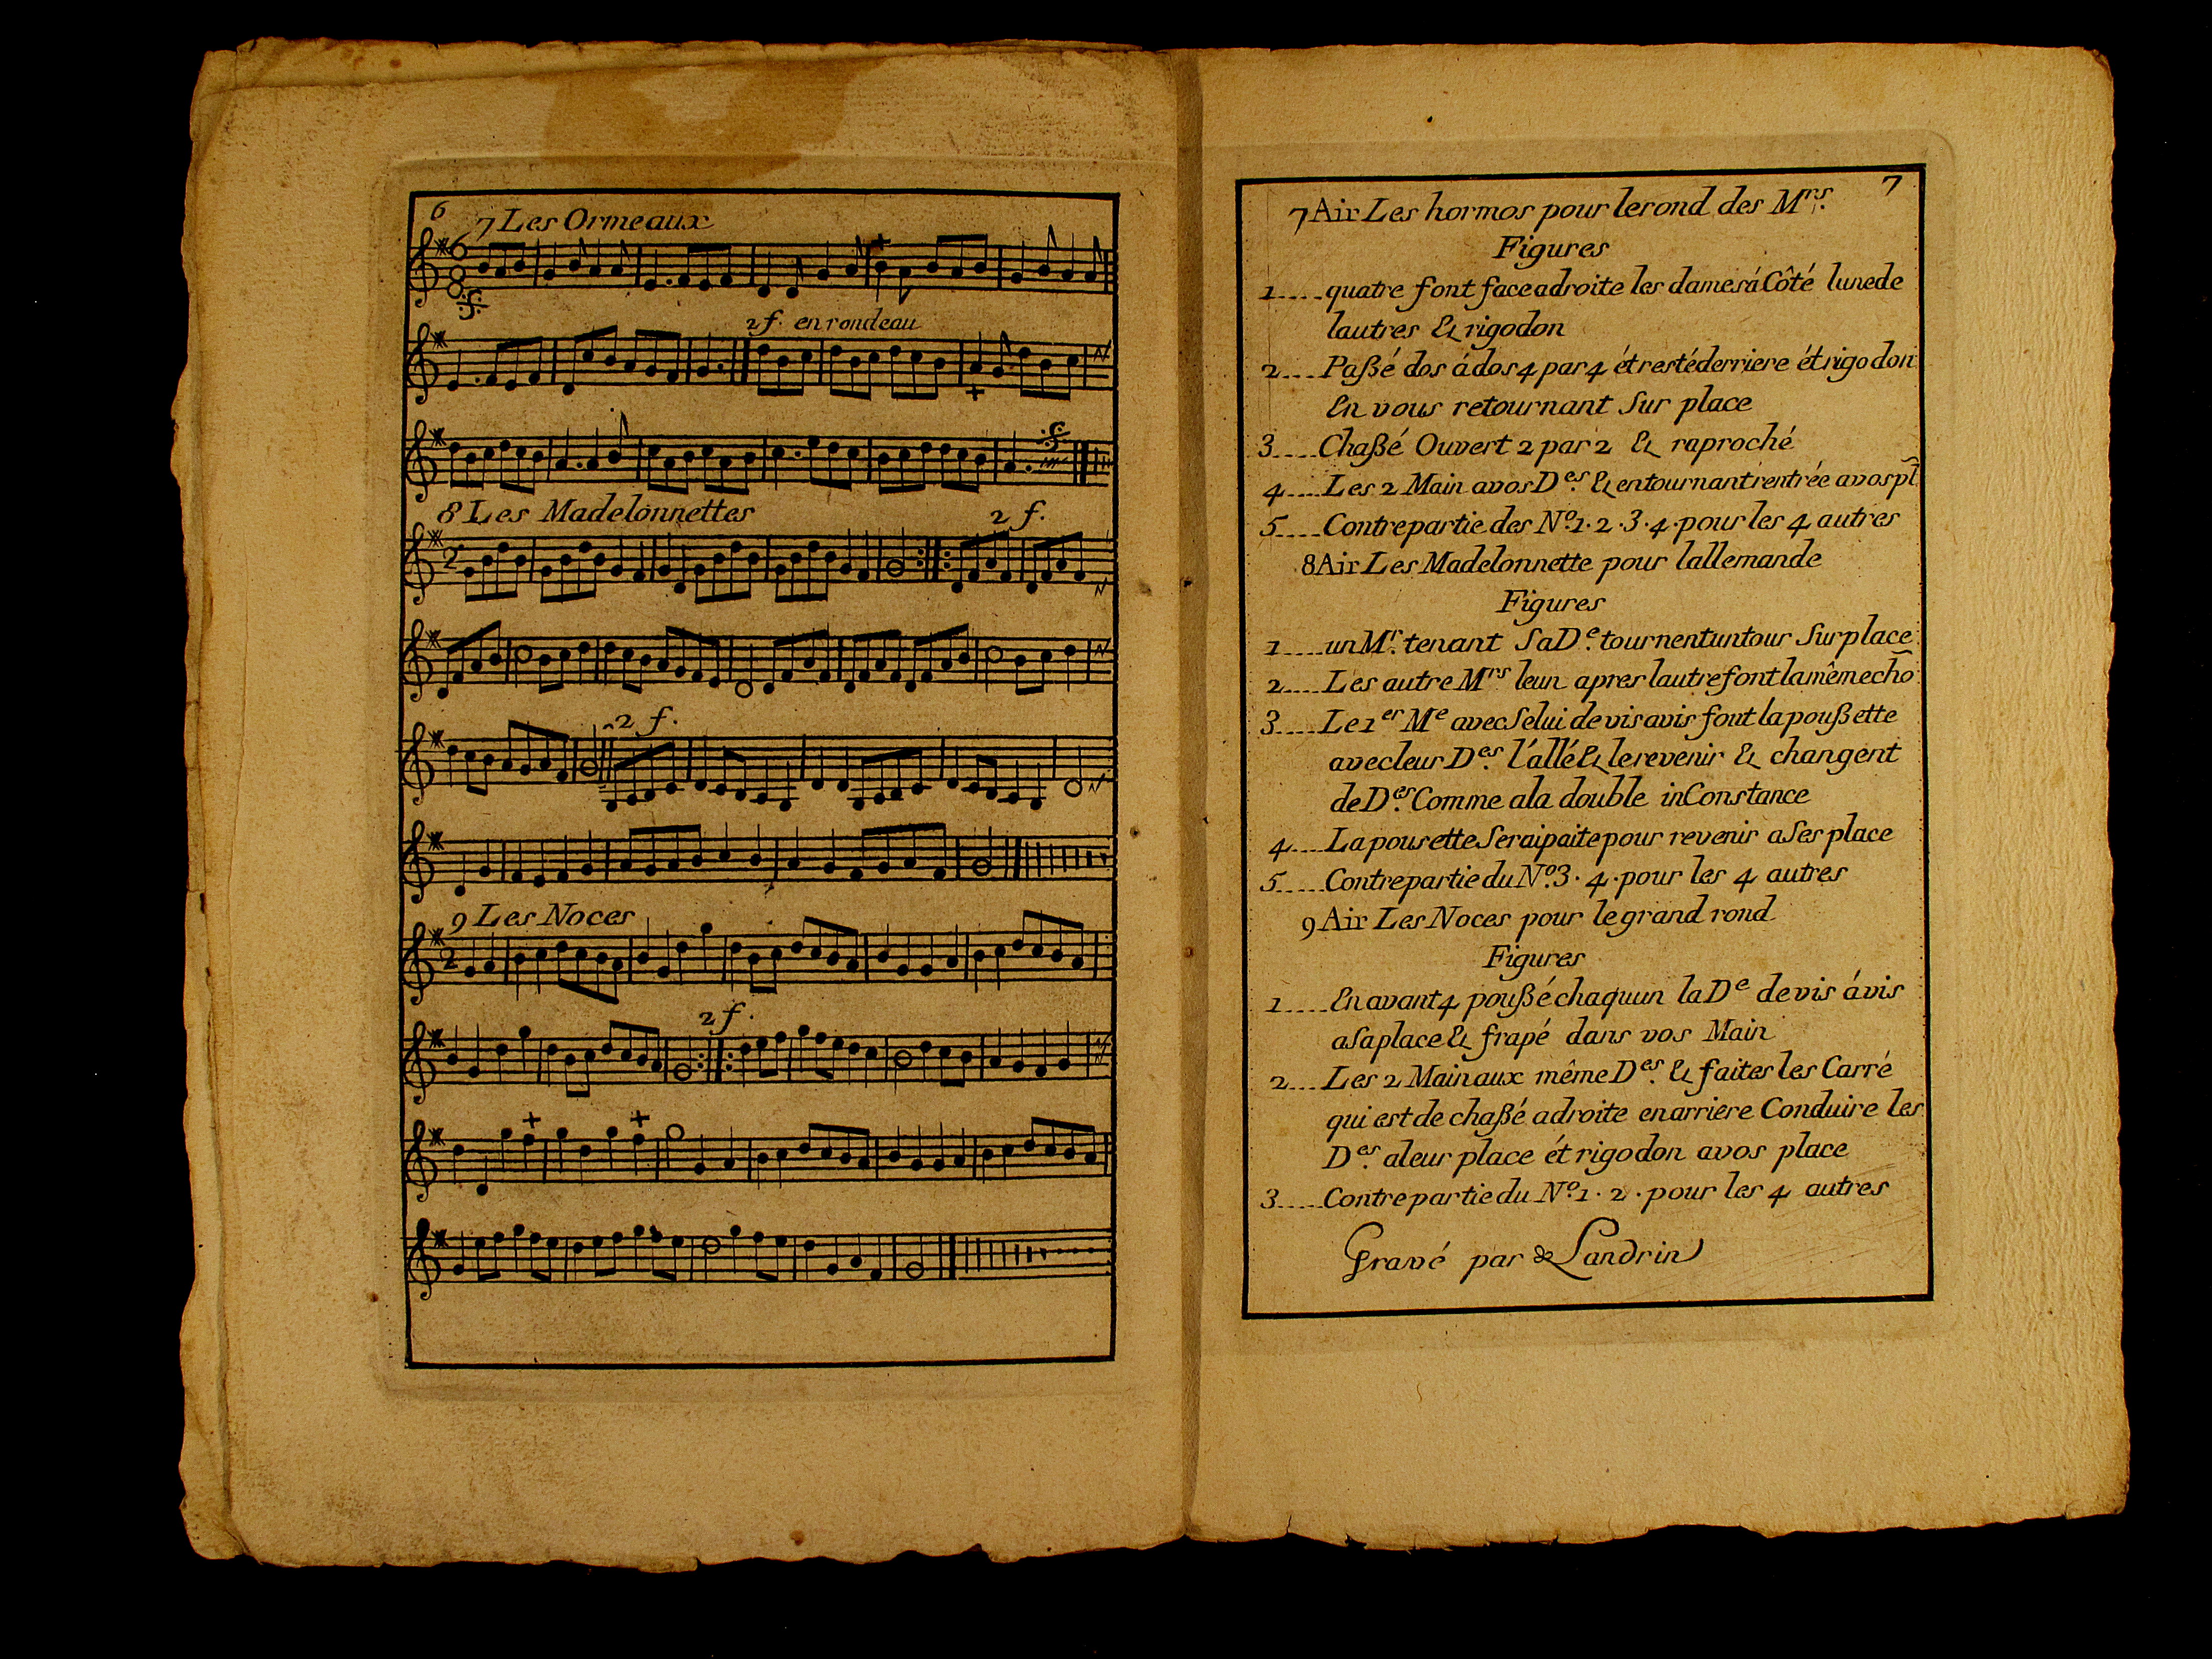 6
7 Les Ormeaux
2 f. en rondeau
8 Les Madelonnettes
2 f.
2 f.
9 Les Noces
2 f.
7
7 Air Les hormos pour le rond des Mrs.
Figures
1.....quatre font face adroite les dames á Côté lunede
lautres & rigodon
2....Paßé dos á dos 4 par 4 ét resté derriere ét rigodon
En vous retournant Sur place
3....Chaßé Ouvert 2 par 2 & raproché
4....Les 2 Main avos Des. & entournant rentrée avos pl
5....Contrepartie des No. 1. 2. 3. 4. pour les 4 autres
8 Air Les Madelonnette pour lallemande
Figures
1....un Mr. tenant Sa De. tournent un tour Sur place
2....Les autre Mrs leun apres lautre font la même cho
3....Le 1er Me avec Selui de vis avis font la poußette
avec leur Des. l'allé & le revenir & changent
de Des. Comme ala double inConstance
4....La pousette Serai paite pour revenir a Ses place
5.....Contrepartie du No. 3. 4. pour les 4 autres
9 Air Les Noces pour le grand rond
Figures
1....En avant 4 poußé chaquun la De de vis ávis
a Sa place & frapé dans vos Main
2....Les 2 Main aux même Des. & faites les Carré
qui est de chaßé adroite en arriere Conduire les
Des. a leur place ét rigodon avos place
3.....Contrepartie du No. 1. 2. pour les 4 autres
Gravé par de Landrin